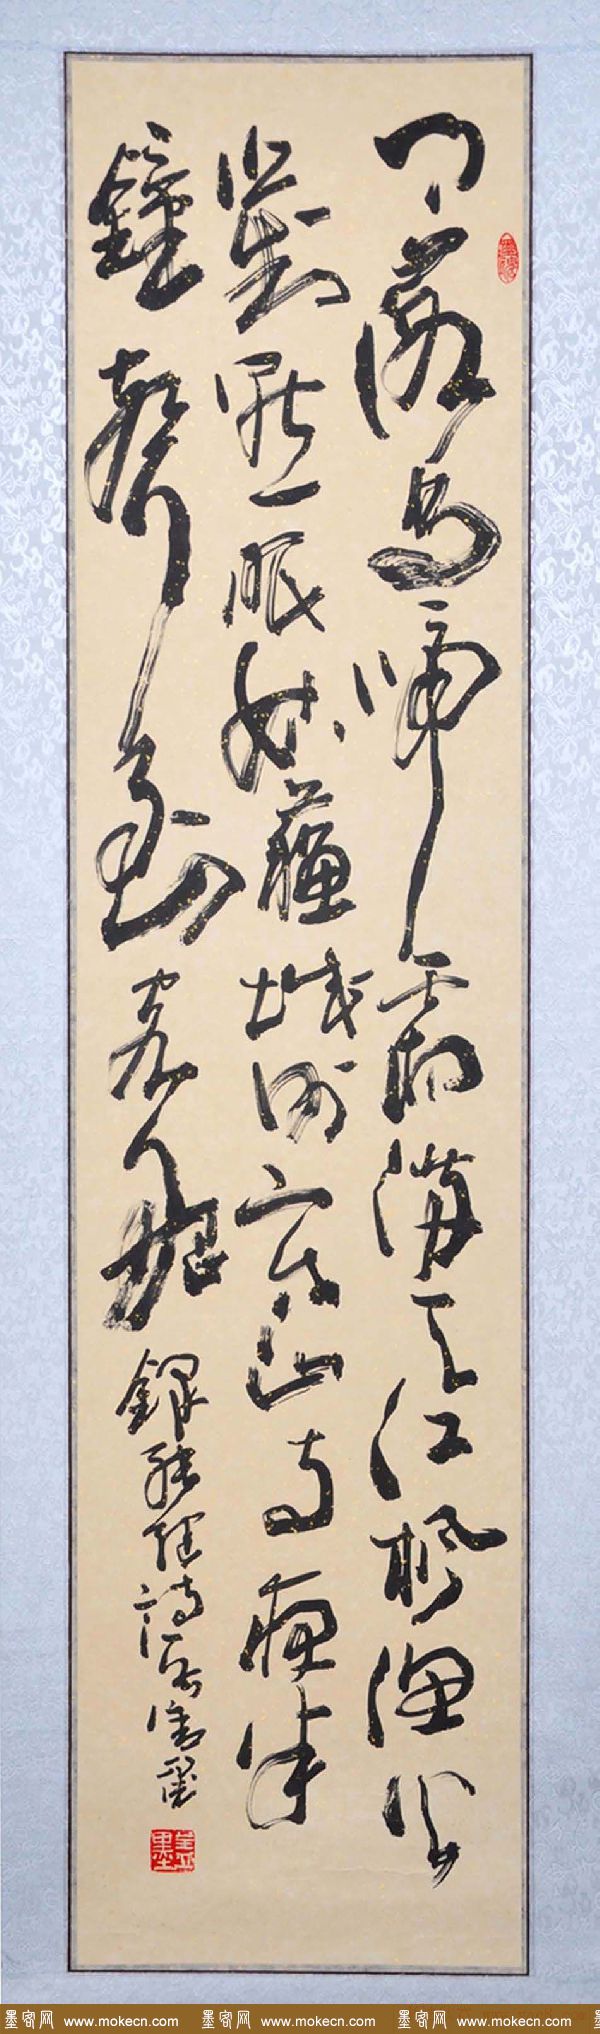 月落烏啼霜滿天江楓漁火
對愁眠姑蘇城外寒山寺夜半
鐘聲到客船
錄張繼詩
墨客网 www.mokecn.com 墨客网 www.mokecn.com 墨客网 www.mokecn.com